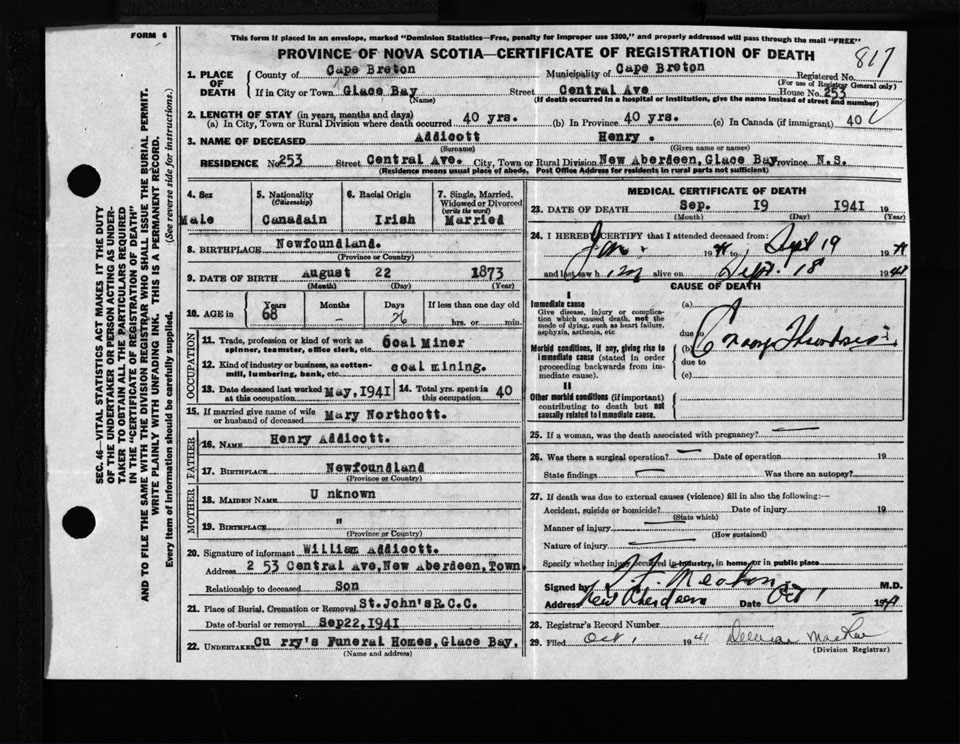 FORM 6
This form if placed in an envelope, marked "Dominion Statistics—Free, penalty for improper use $300," and properly addressed will pass through the mail "FREE"
PROVINCE OF NOVA SCOTIA—CERTIFICATE OF REGISTRATION OF DEATH
817
1. PLACE OF DEATH
County of Cape Breton Municipality of Cape Breton Registered No.
(For use of Registrar General only)
If in City or Town Glace Bay Street Central Ave House No. 253
(Name) (If death occurred in a hospital or institution, give the name instead of street and number)
2. LENGTH OF STAY (in years, months and days)
(a) In City, Town or Rural Division where death occurred 40 yrs. (b) In Province 40 yrs. (c) In Canada (if immigrant) 40
3. NAME OF DECEASED Addicott Henry.
(Surname) (Given name or names)
RESIDENCE No 253 Street Central Ave. City, Town or Rural Division New Aberdeen, Glace Bay Province N.S.
(Residence means usual place of abode. Post Office Address for residents in rural parts not sufficient)
4. Sex 5. Nationality (Citizenship) 6. Racial Origin 7. Single, Married, Widowed or Divorced (write the word)
Male Canadain Irish Married
8. BIRTHPLACE Newfoundland.
(Province or Country)
9. DATE OF BIRTH August 22 1873
(Month) (Day) (Year)
10. AGE in Years Months Days If less than one day old
68 - 26 hrs. or min.
OCCUPATION
11. Trade, profession or kind of work as spinner, teamster, office clerk, etc. Coal Miner
12. Kind of industry or business, as cotton-mill, lumbering, bank, etc. coal mining.
13. Date deceased last worked at this occupation May, 1941 14. Total yrs. spent in this occupation 40
15. If married give name of wife or husband of deceased Mary Northcott.
FATHER
16. NAME Henry Addicott.
17. BIRTHPLACE Newfoundland
(Province or Country)
MOTHER
18. MAIDEN NAME U nknown
19. BIRTHPLACE "
(Province or Country)
20. Signature of informant William Addicott.
Address 2 53 Central Ave, New Aberdeen, Town.
Relationship to deceased Son
21. Place of Burial, Cremation or Removal St.John's R.C.C.
Date of burial or removal Sep22,1941
22. UNDERTAKER Cu rry's Funeral Homes, Glace Bay.
(Name and address)
MEDICAL CERTIFICATE OF DEATH
23. DATE OF DEATH Sep. 19 1941 19
(Month) (Day) (Year)
24. I HEREBY CERTIFY that I attended deceased from:
Jan. 19 41 to Sept 19 19 41
and last saw h im alive on Sept. 18 19 41
CAUSE OF DEATH
I
Immediate cause
Give disease, injury or complication which caused death, not the mode of dying, such as heart failure, asphyxia, asthenia, etc
(a)
due to
Morbid conditions, if any, giving rise to immediate cause (stated in order proceeding backwards from immediate cause).
(b) Coronary Thrombosis
due to
(c)
II
Other morbid conditions (if important) contributing to death but not causally related to immediate cause.
25. If a woman, was the death associated with pregnancy?
26. Was there a surgical operation? Date of operation 19
State findings Was there an autopsy?
27. If death was due to external causes (violence) fill in also the following:—
Accident, suicide or homicide? Date of injury 19
(State which)
Manner of injury
(How sustained)
Nature of injury
Specify whether injury occurred in industry, in home, or in public place
Signed by M.D.
Address New Aberdeen Date Oct 1 19 41
28. Registrar's Record Number
29. Filed Oct 1 19 41
(Division Registrar)
SEC. 46—VITAL STATISTICS ACT MAKES IT THE DUTY
OF THE UNDERTAKER OR PERSON ACTING AS UNDER-
TAKER TO OBTAIN ALL THE PARTICULARS REQUIRED
IN THE "CERTIFICATE OF REGISTRATION OF DEATH"
AND TO FILE THE SAME WITH THE DIVISION REGISTRAR WHO SHALL ISSUE THE BURIAL PERMIT.
WRITE PLAINLY WITH UNFADING INK. THIS IS A PERMANENT RECORD.
Every item of information should be carefully supplied. (See reverse side for instructions.)